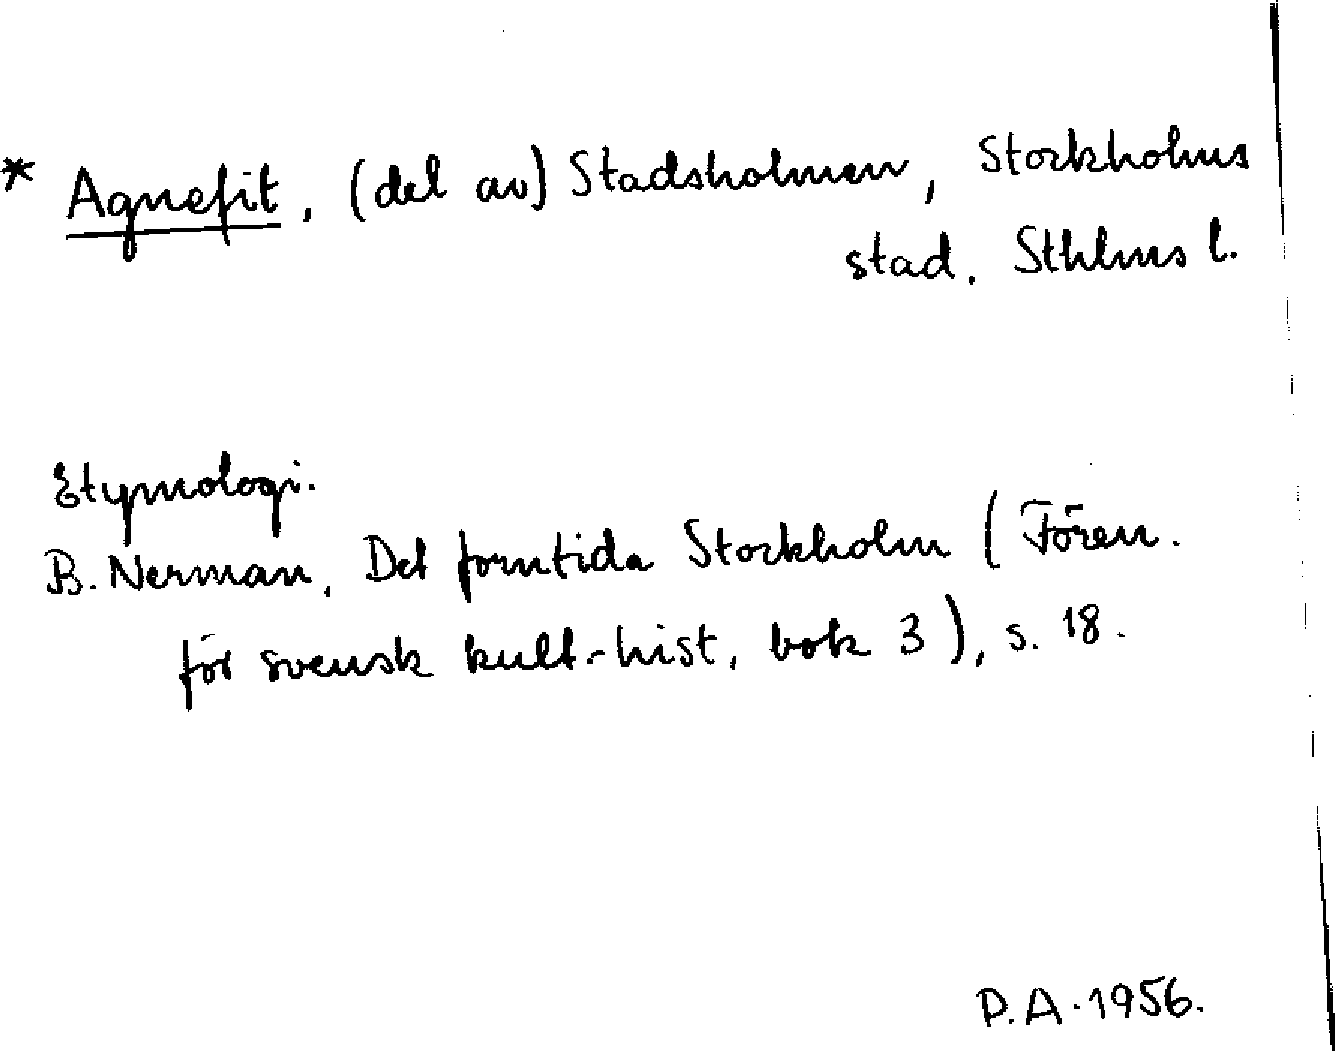 * Agnefit, (del av) Stadsholmen, Stockholms
stad, Sthlms l.
Etymologi.
B. Nerman, Det forntida Stockholm (Fören.
för svensk kult.-hist., bok 3), s. 18.
P.A. 1956.